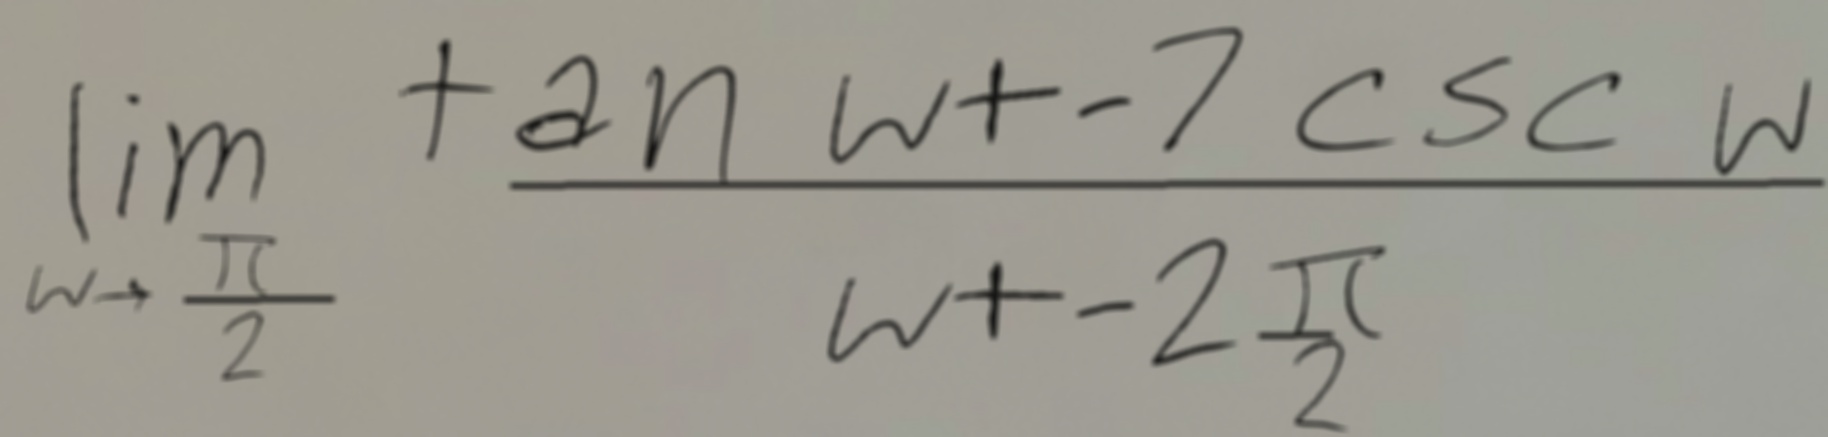 \lim_{w \to \frac{\pi}{2}} \frac{\tan w + -7 \csc w}{w + -2 \frac{\pi}{2}}